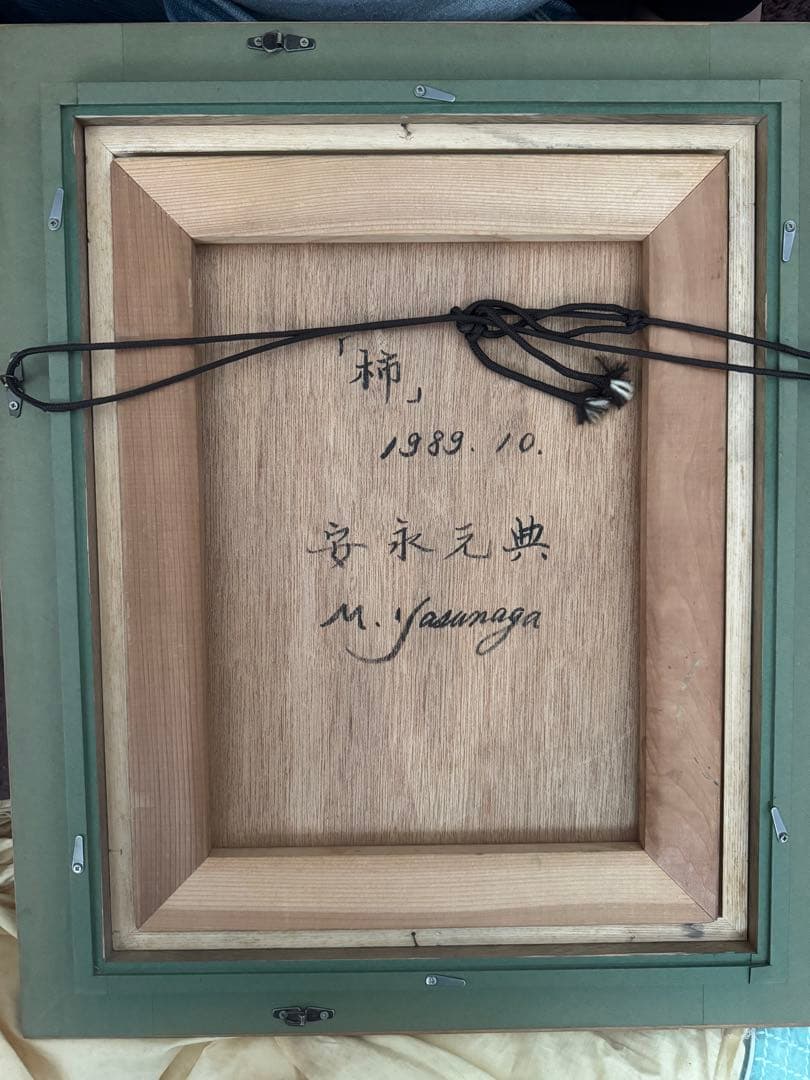 「柿」
1989.10.
安永元典
M. Yasunaga